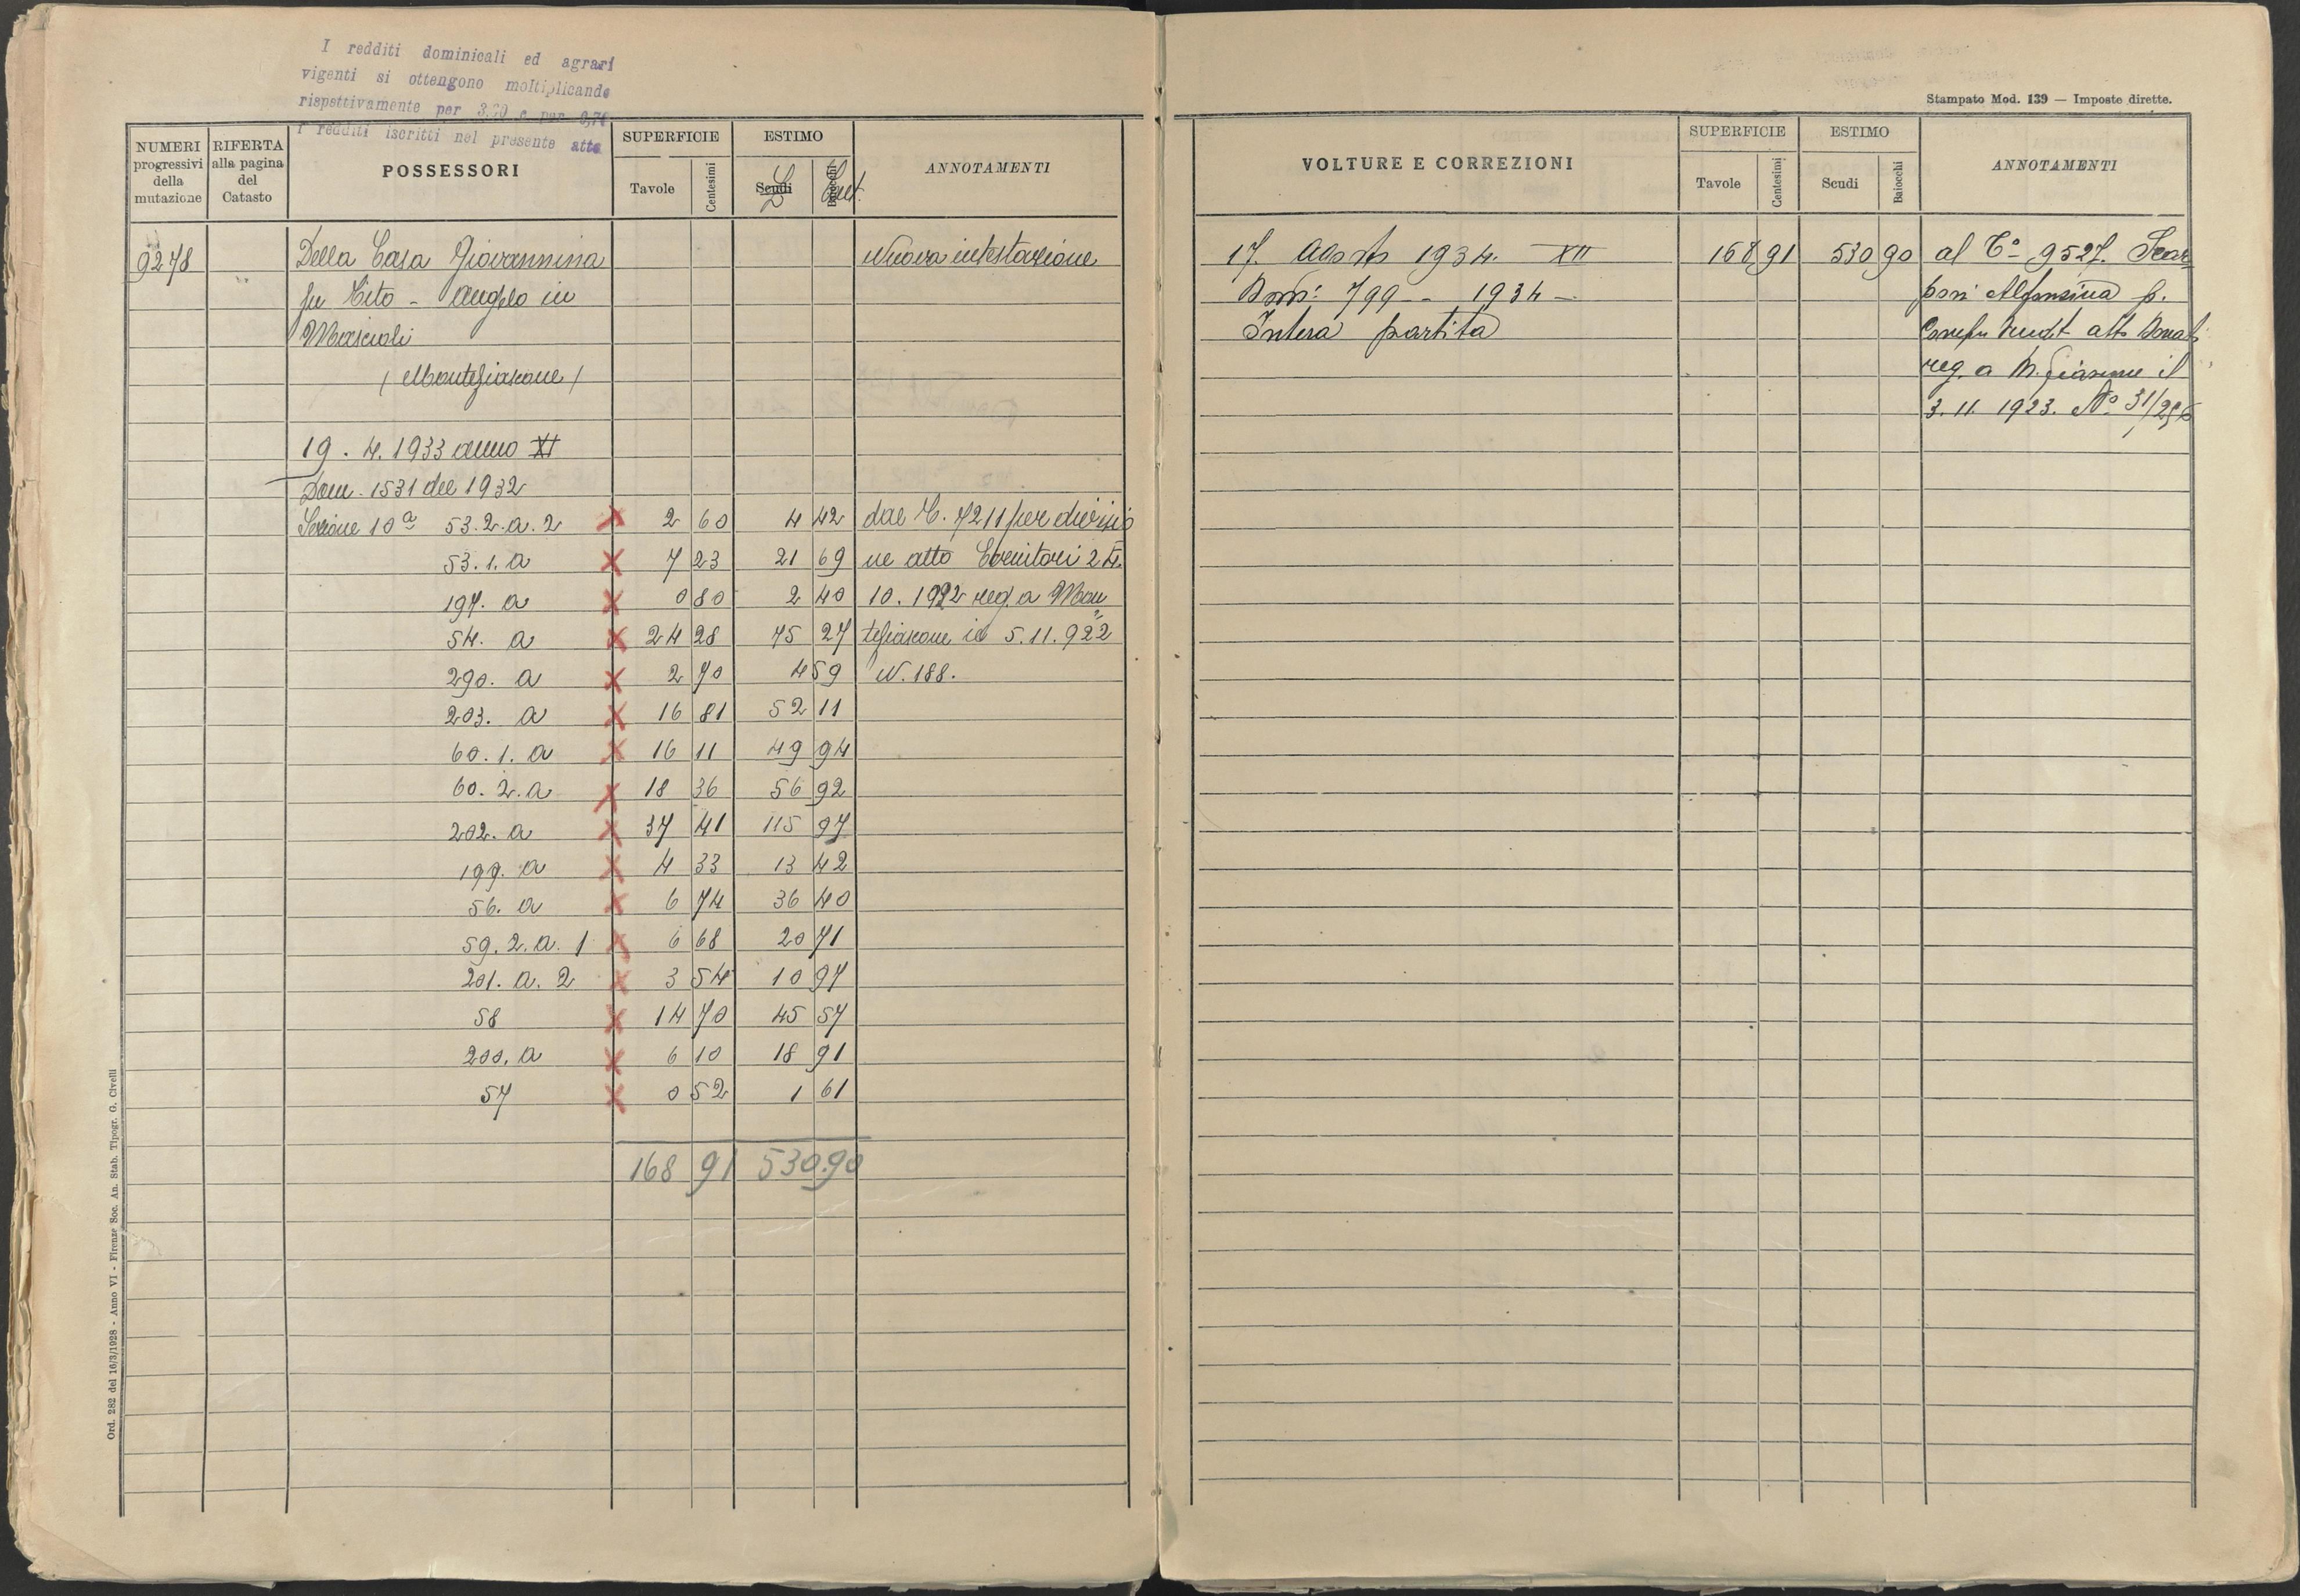 I redditi dominicali ed agrari
vigenti si ottengono moltiplicando
rispettivamente per 3.20 e per 0,70
i redditi iscritti nel presente atto
NUMERI progressivi della mutazione
RIFERTA alla pagina del Catasto
POSSESSORI
SUPERFICIE
Tavole Centesimi
ESTIMO
Scudi Baiocchi
L Cent.
ANNOTAMENTI
9278 Della Casa Giovannina Nuova intestazione
fu Tito - Angelo in
Mascioli
(Montefiascone)
19. 4. 1933 anno XI
Dom. 1531 del 1932
Sezione 10ª 53.2.a.2 X 2 60 4 42 dal C. 7211 per divisio
53.1.a X 7 23 21 69 ne atto 24.
197. a X 0 80 2 40 10. 1922 reg. a Mon
54. a X 24 28 75 27 tefiascone il 5.11.922
290. a X 2 70 4 59 N. 188.
203. a X 16 81 52 11
60. 1. a X 16 11 49 94
60. 2. a X 18 36 56 92
202. a X 37 41 115 97
199. a X 4 33 13 42
56. a X 6 74 36 40
59. 2. a. 1 X 6 68 20 71
201. a. 2 X 3 54 10 97
58 X 14 70 45 57
200. a X 6 10 18 91
57 X 0 52 1 61
168 91 530.90
Ord. 282 del 16/3/1928 - Anno VI - Firenze Soc. An. Stab. Tipogr. G. Civelli
Stampato Mod. 139 — Imposte dirette.
VOLTURE E CORREZIONI
SUPERFICIE
Tavole Centesimi
ESTIMO
Scudi Baiocchi
ANNOTAMENTI
17. Agosto 1934. XII 168 91 530 90 al C° 9527. Scar
Dom: 799 - 1934 - poni Alfonsina p.
Intera partita atto
reg. a M. fiascone il
3. 11. 1923. N°